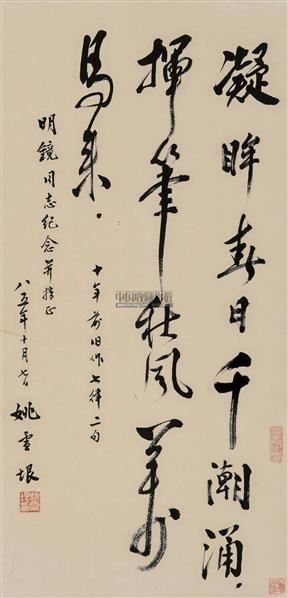 凝眸春日千潮涌，
挥笔秋风万
马来。
十年前旧作七律二句
明镜同志纪念并指正
八五年十月
姚雪垠